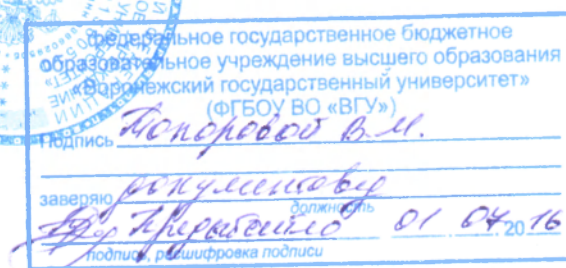 федеральное государственное бюджетное
образовательное учреждение высшего образования
«Воронежский государственный университет»
(ФГБОУ ВО «ВГУ»)
Подпись Топоровой В.М.
заверяю документовед
должность
01 07 2016
подпись, расшифровка подписи